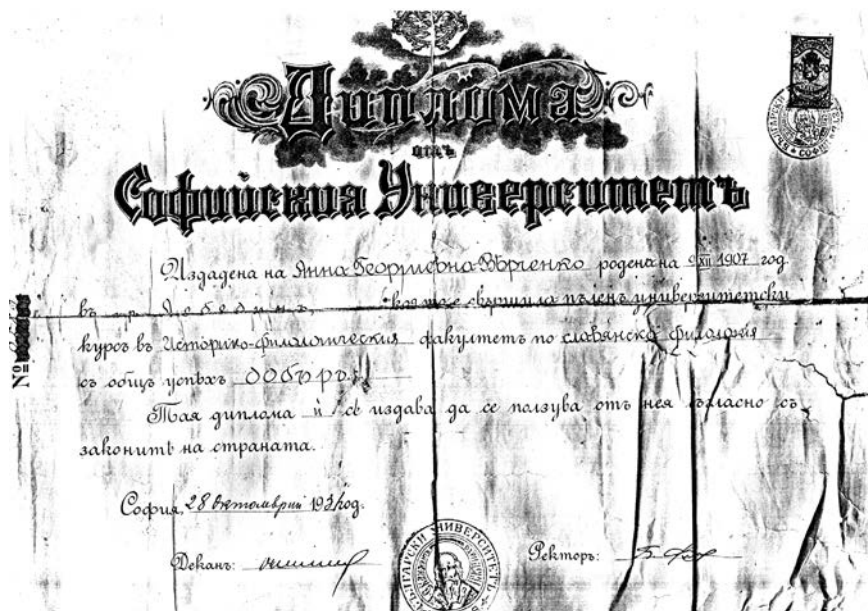 Диплома
отъ
Софийския Университетъ
Издадена на Янна Георгиевна родена на XII 1907 год
въ гр. Лебединъ, която е свършила пъленъ университетски
курсъ въ Историко-филологическия факултетъ по славянска филология
съ общъ успѣхъ добъръ.
Тая диплома ѝ се издава да се ползува отъ нея съгласно съ
законитѣ на страната.
София, 28 Октомврий 193 год.
Деканъ:
Ректоръ:
БЪЛГАРСКИ УНИВЕРСИТЕТЪ
№